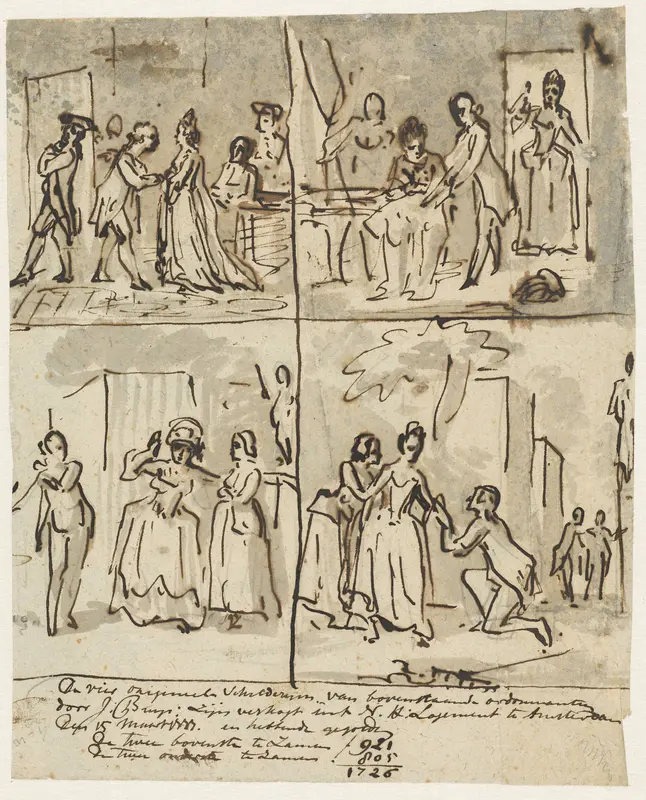 De vier origineele Schilderijen van bovenstaande ordonnantien
door J. Buys. Zijn verkogt int N. H. Logement te Amsterdam
Den 15 Maart en hebbende gegolde
De twee bovenste te Zamen f 921
de twee onderste te Zamen 805
1726